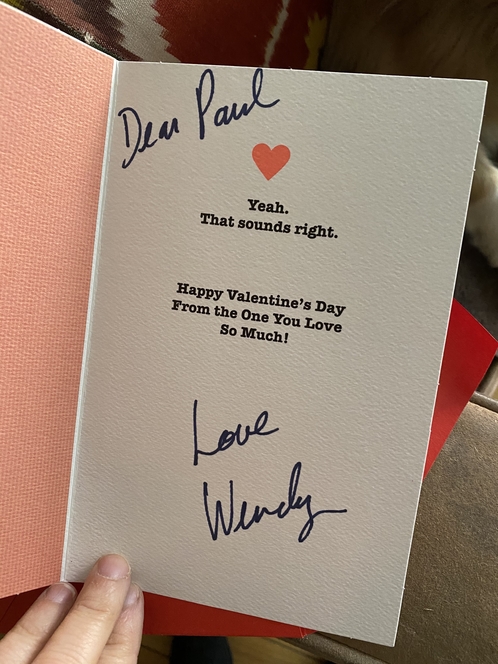 Dear Paul
Yeah.
That sounds right.
Happy Valentine's Day
From the One You Love
So Much!
Love
Wendy